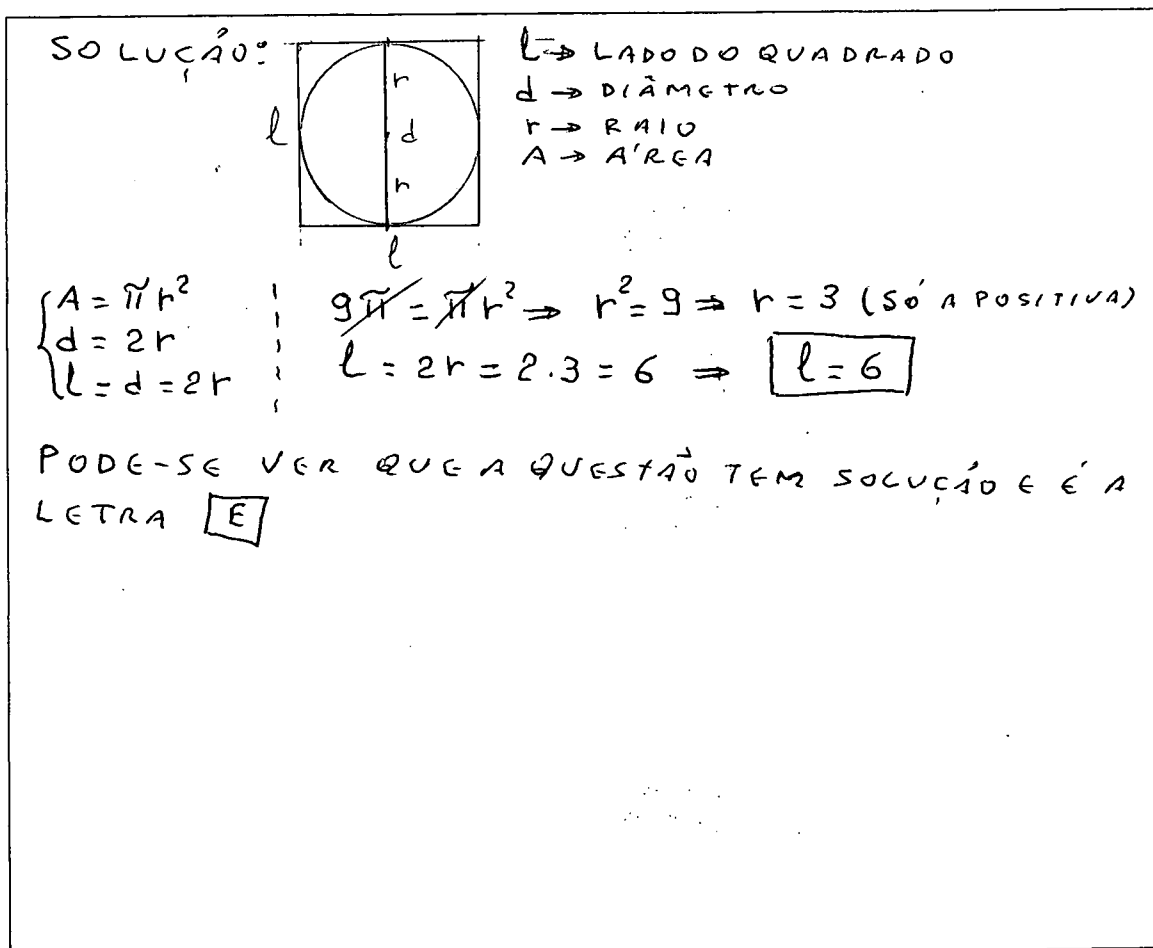 SOLUÇÃO:
l → LADO DO QUADRADO
d → DIÂMETRO
r → RAIO
A → ÁREA
r
l
d
r
l
A = πr²
d = 2r
l = d = 2r
9π = πr² ⇒ r² = 9 ⇒ r = 3 (SÓ A POSITIVA)
l = 2r = 2.3 = 6 ⇒ l = 6
PODE-SE VER QUE A QUESTÃO TEM SOLUÇÃO E É A
LETRA E